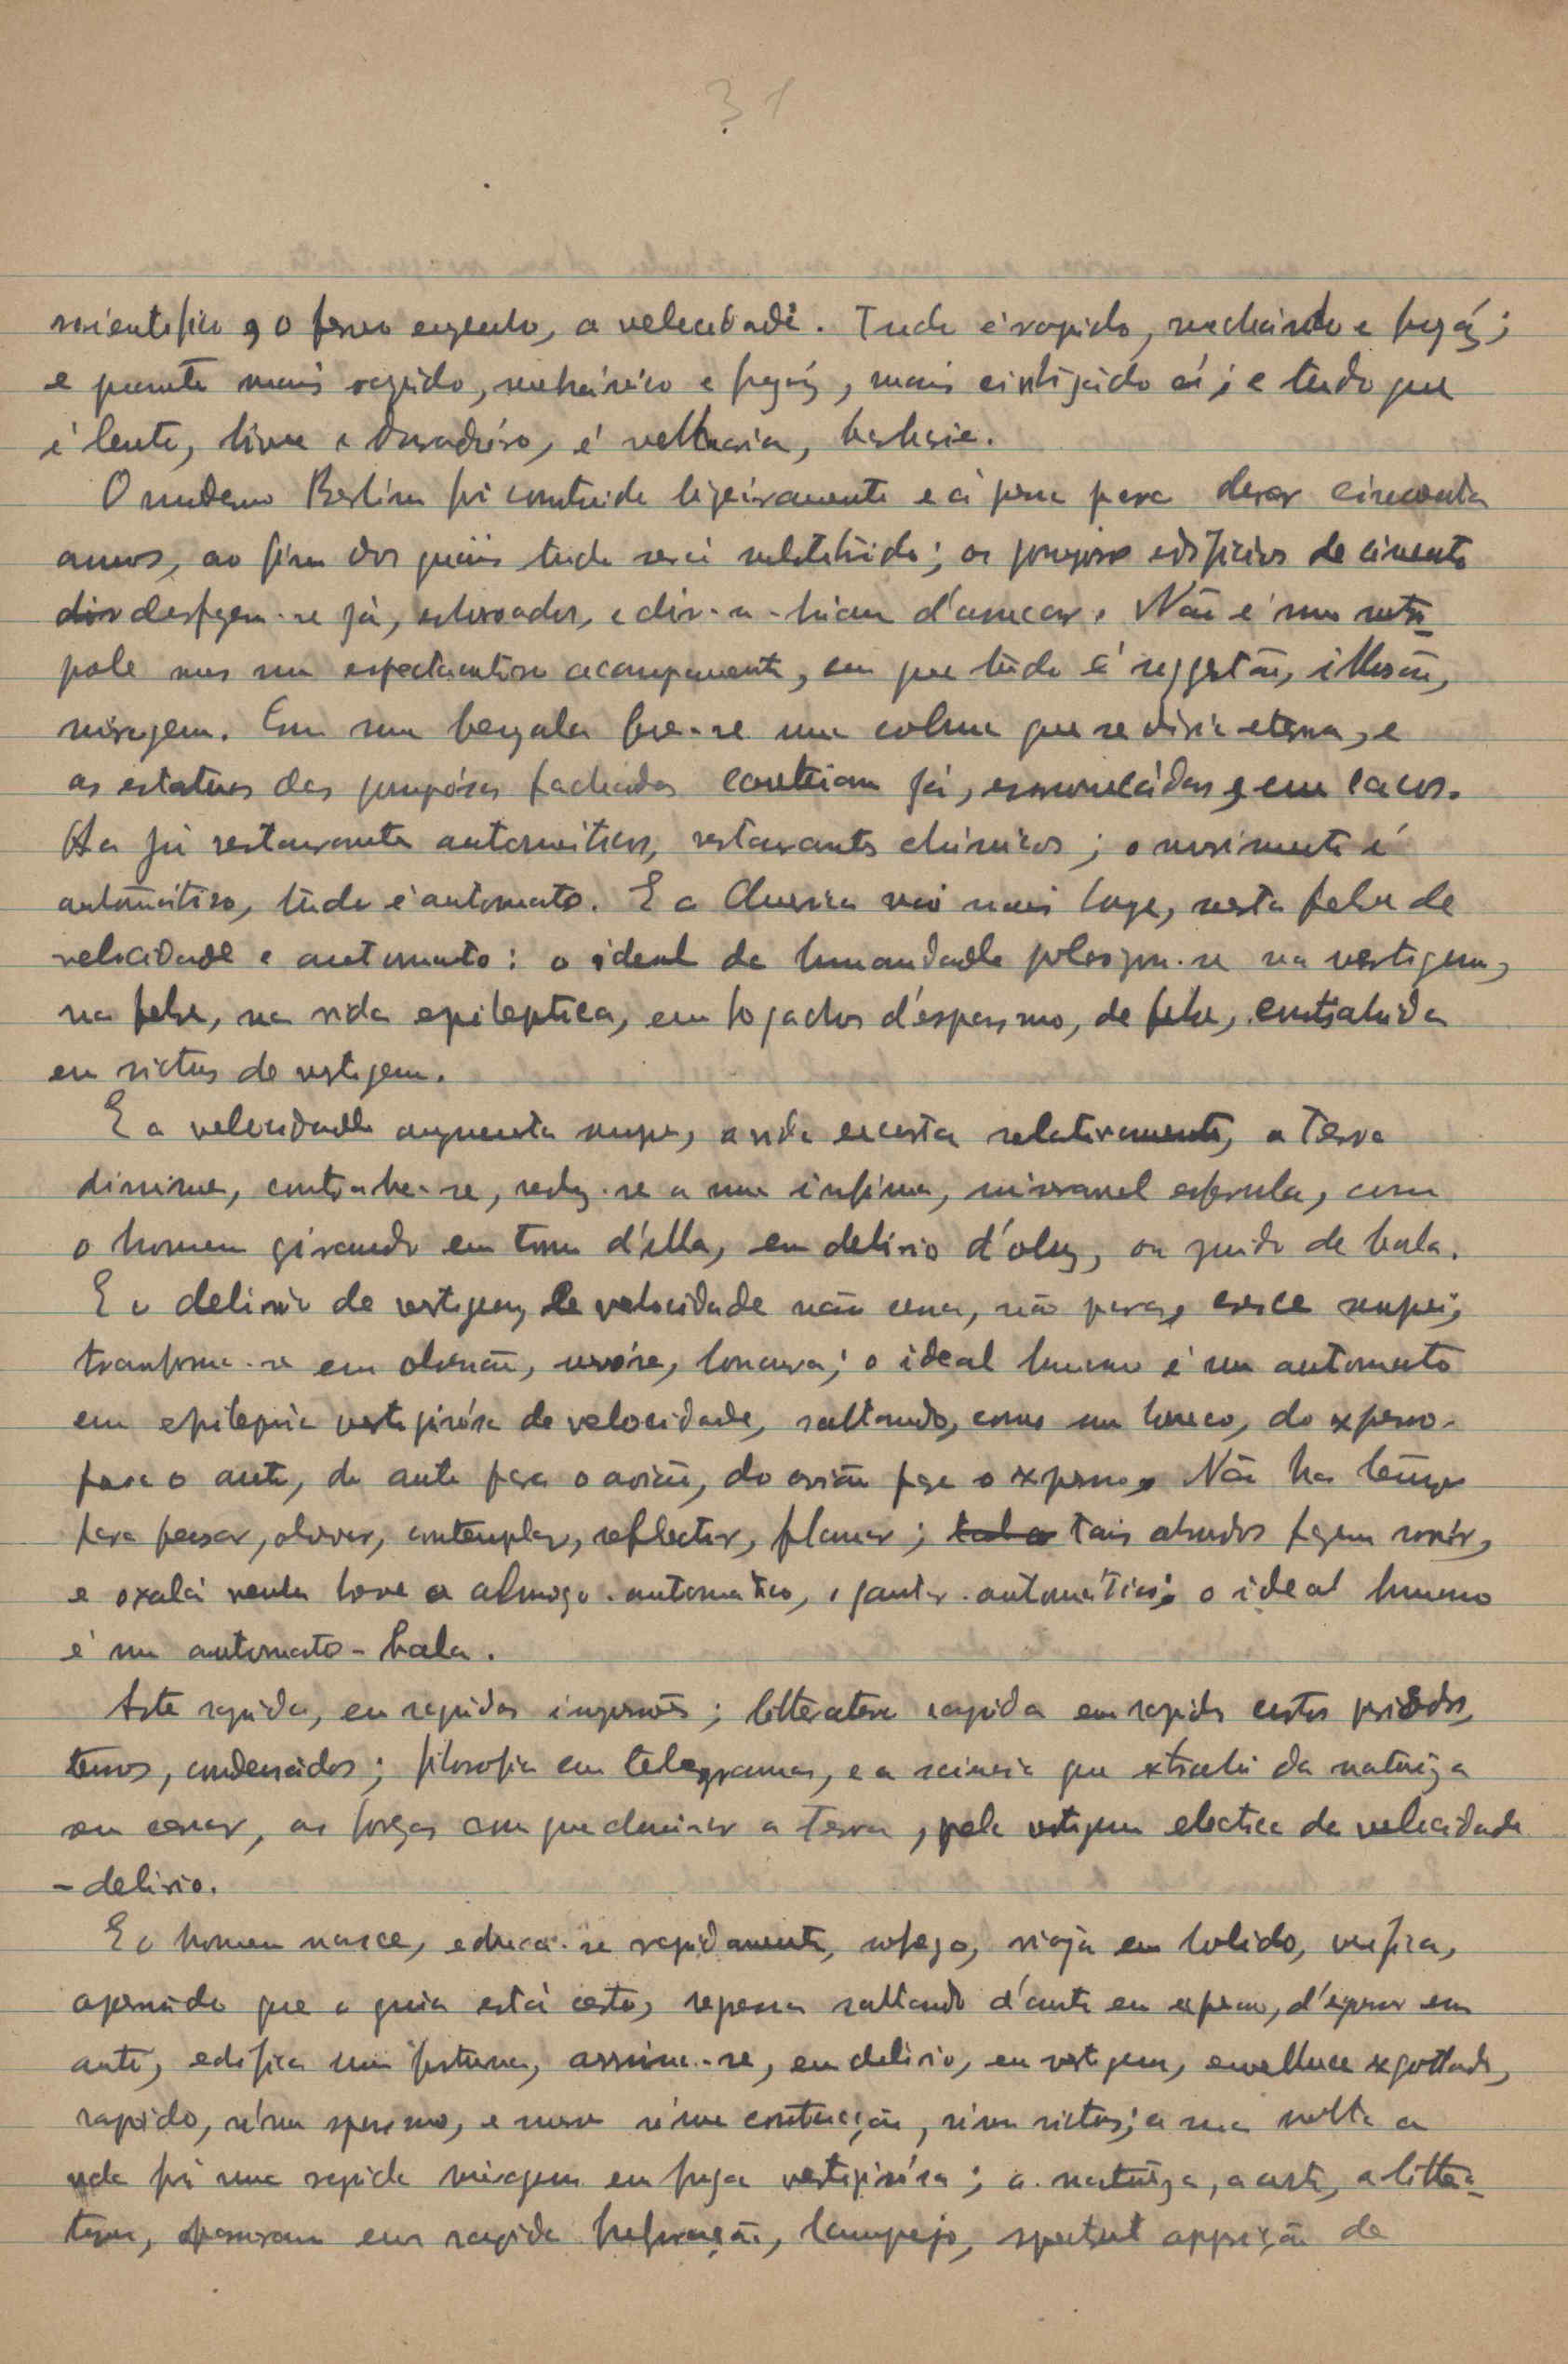 31
scientifico, o ferro cimento, a velocidade. Tudo é rapido, mechánico e fugáz;
e quanto mais rapido, mechánico e fugáz, mais civilizado é; e tudo que
é lento, livre e duradoiro, é velharia, barbarie.
O moderno Berlim foi construido ligeiramente e é para durar cincoenta
annos, ao fim dos quáis tudo será substituido; os pomposos edificios de cimento
desfazem-se já, esboroados, e dir-se-hiam d'assucar. Não é uma metró-
pole mas um espectaculoso acampamento, em que tudo é suggestão, illusão,
miragem. Com uma bengala fura-se uma coluna que se diria eterna, e
as estatuas das pompósas fachadas já, esmoucádas, em cacos.
Ha já restaurantes automáticos, restaurantes chimicos; o movimento é
automático, tudo é automato. E a America vai mais longe, nesta febre de
velocidade e automato: o ideal da humanidade na vertigem,
na febre, na vida epileptica, em d'espasmo, de febre, contrahida
em rictus de vertigem.
E a velocidade augmenta sempre, a vida encurta relativamente, a Terra
diminue, contrahe-se, reduz-se a uma infima, miseravel esferula, com
o homem girando em torno d'ella, em delirio d'obuz, ou zunido de bala.
E o delirio de vertigem, de velocidade não cessa, não para, cresce sempre,
transforma-se em obsessão, nevróse, loucura; o ideal humano é um automato
em epilepsia vertiginósa de velocidade, saltando, como um louco, do expresso
para o auto, do auto para o avião, do avião para o expresso. Não ha tempo
para pensar, observar, contemplar, reflectir, planear; tais absurdos fazem sorrir,
e oxalá venha breve o almoço-automatico, o jantar-automático; o ideal humano
é um automato-bala.
Arte rapida, em rapidas impressões; litteratura rapida em rapidos curtos periodos,
tensos, condensados; filosofia em telegramas, e a sciencia que extrahi da naturêza
sem cessar, as forças com que dominar a Terra, pela vertigem electrica da velocidade
-delirio.
E o homem nasce, educa-se rapidamente, sofrego, viaja em bolido, verifica,
apressado que o guia está certo, regressa saltando d'auto em expresso, d'expresso em
auto, edifica uma fortuna, em delirio, em vertigem, envelhece exgottado,
rapido, n'um espasmo, e morre n'uma contracção, n'um rictus; a sua volta a
vida foi uma rapida miragem em fuga vertiginósa; a naturêza, a arte, a littera-
tura, passaram em rapida lampejo, espectral apparição de